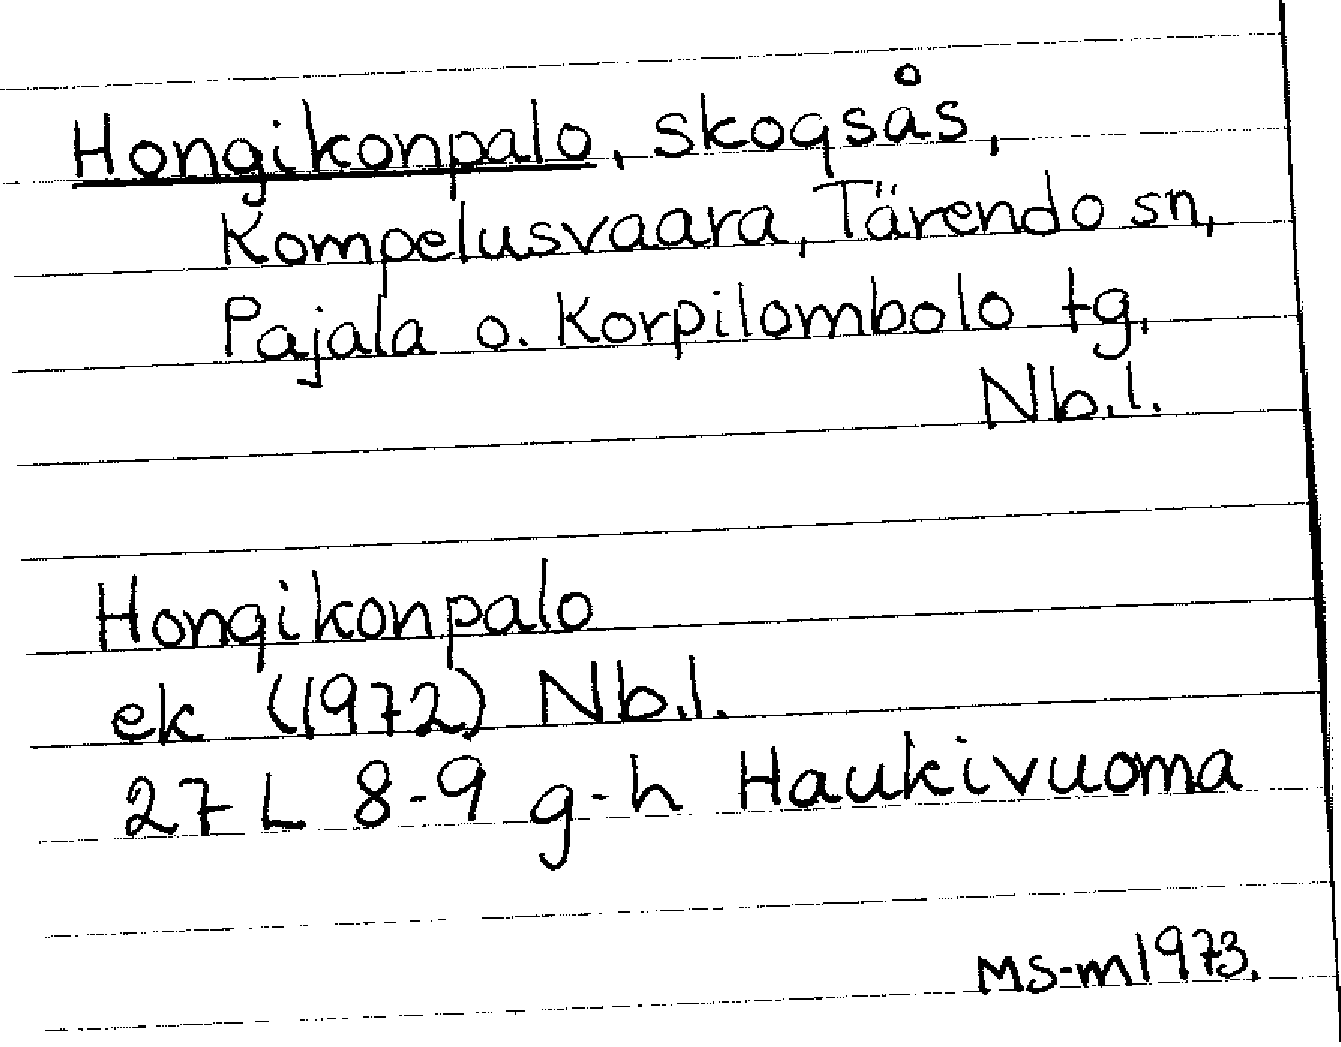 Hongikonpalo, skogsås,
Kompelusvaara, Tärendo sn,
Pajala o. Korpilombolo tg,
Nb.l.
Hongikonpalo
ek (1972) Nb.l.
27 L 8-9 g-h Haukivuoma
MS-m 1973.